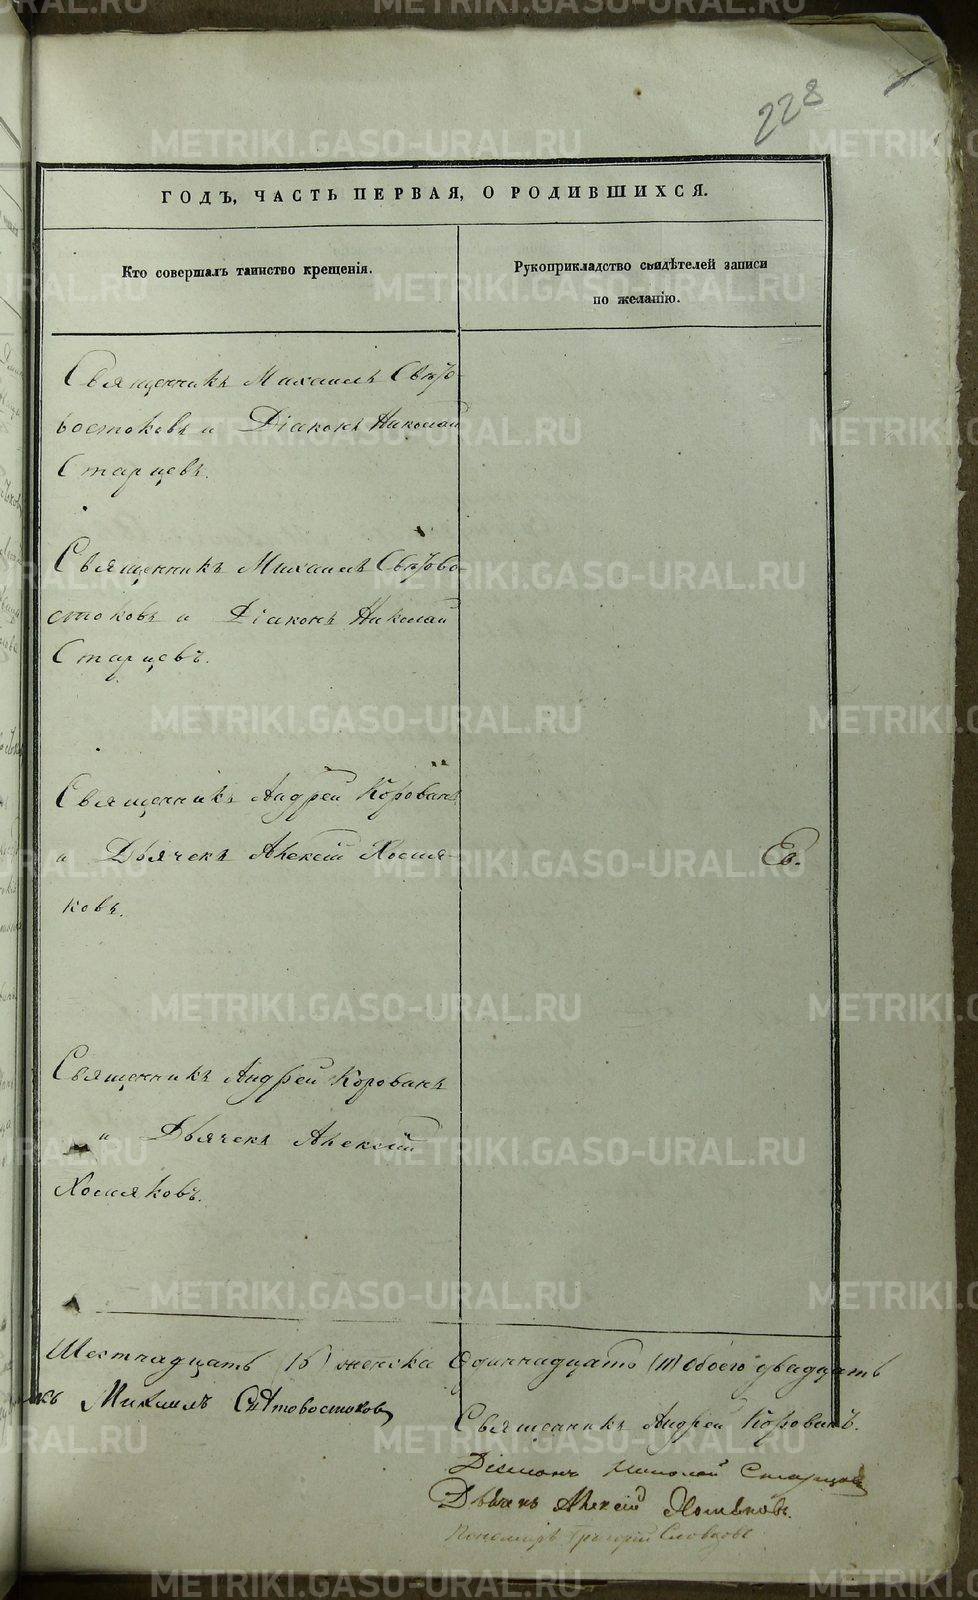 228
ГОДЪ, ЧАСТЬ ПЕРВАЯ, О РОДИВШИХСЯ.
Кто совершалъ таинство крещенія.
Рукоприкладство свидѣтелей записи
по желанію.
Священникъ Михаилъ Свѣто-
востоковъ и Діаконъ Николай
Старцевъ.
Священникъ Михаилъ Свѣтово-
стоковъ и Діаконъ Николай
Старцевъ.
Священникъ Андрей Корованъ
и Дьячекъ Алексій Хомя-
ковъ.
Священникъ Андрей Корованъ
и Дьячекъ Алексій
Хомяковъ.
Шестнадцать (16) женска одиннадцать (11) обоего двадцать
Михаилъ Свѣтовостоковъ
Священникъ Андрей Корованъ.
Діаконъ Николай Старцевъ
Дьячекъ Алексій Хомяковъ.
Пономарь Григорій Словцовъ
METRIKI.GASO-URAL.RU